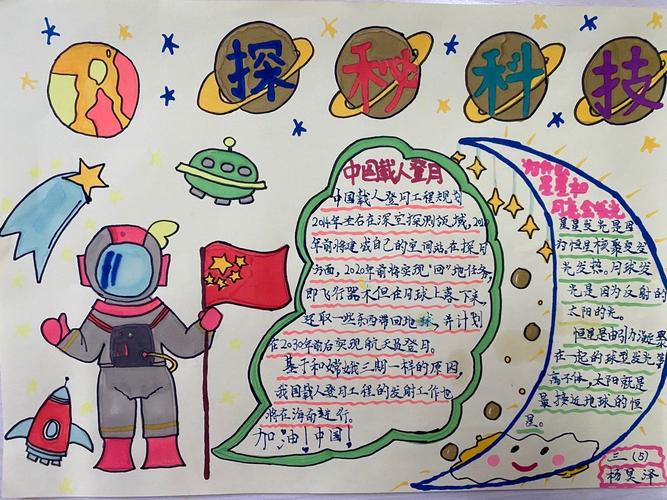 探秘科技
中国载人登月
中国载人登月工程规划
2014年左右在深空探测领域,2020
年前将建成自己的空间站。在探月
方面,2020年前将实现"回"地任务,
即飞行器不但在月球上落下来,
还取一些东西带回地球,并计划
在2030年前后实现航天员登月。
基于和嫦娥三期一样的原因,
我国载人登月工程的发射工作也
将在海南进行。
加油!中国!
为什么
星星和
月亮会发光
星星发光是因
为恒星核聚变发
光发热。月球发
光是因为反射的
太阳的光。
恒星是由引力凝聚
在一起的球型发光等
离子体,太阳就是
最接近地球的恒
星。
三(5)
杨昊泽